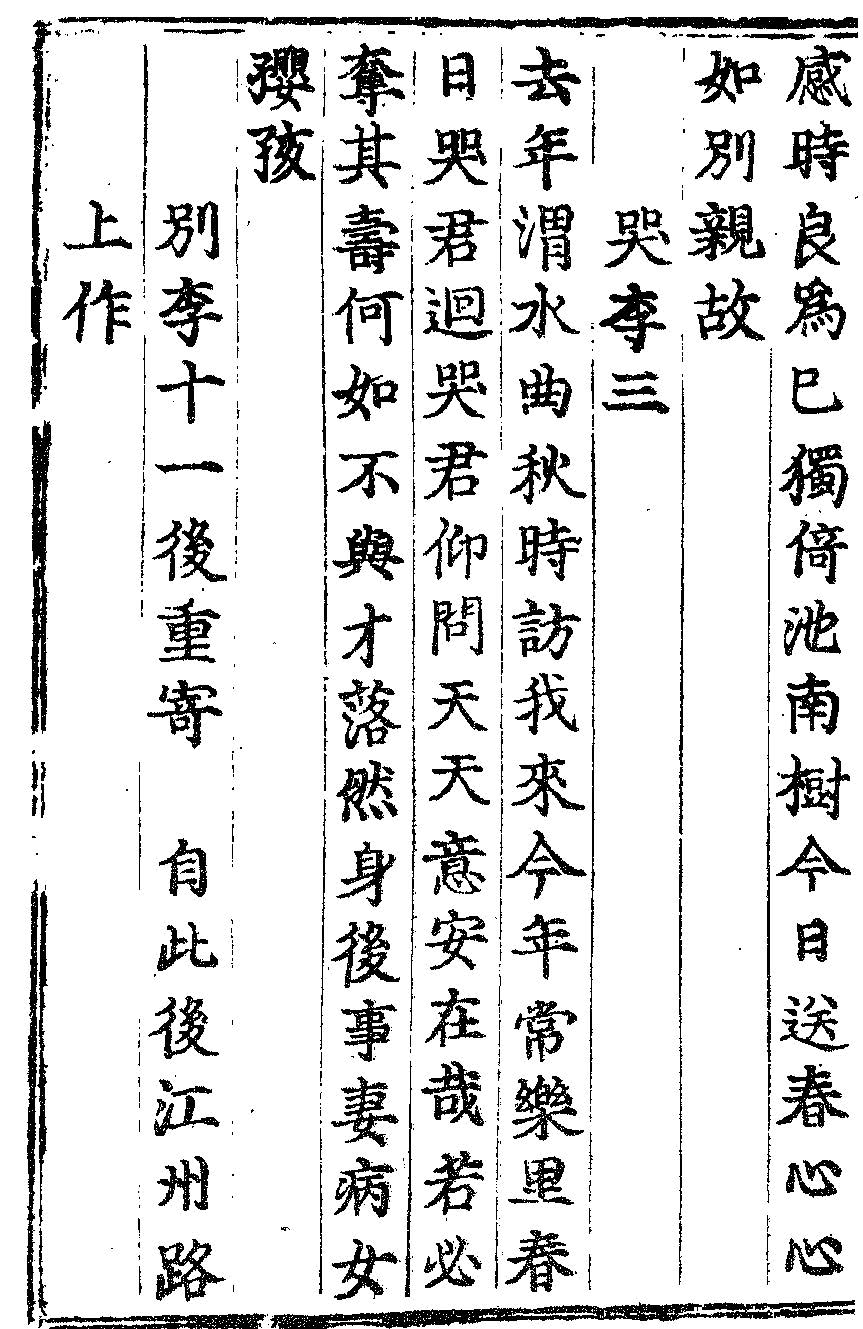 感時良爲已獨倚池南樹今日送春心心
如別親故
哭李三
去年渭水曲秋時訪我來今年常樂里春
日哭君迴哭君仰問天天意安在哉若必
奪其壽何如不與才落然身後事妻病女
孾孩
別李十一後重寄　自此後江州路
上作